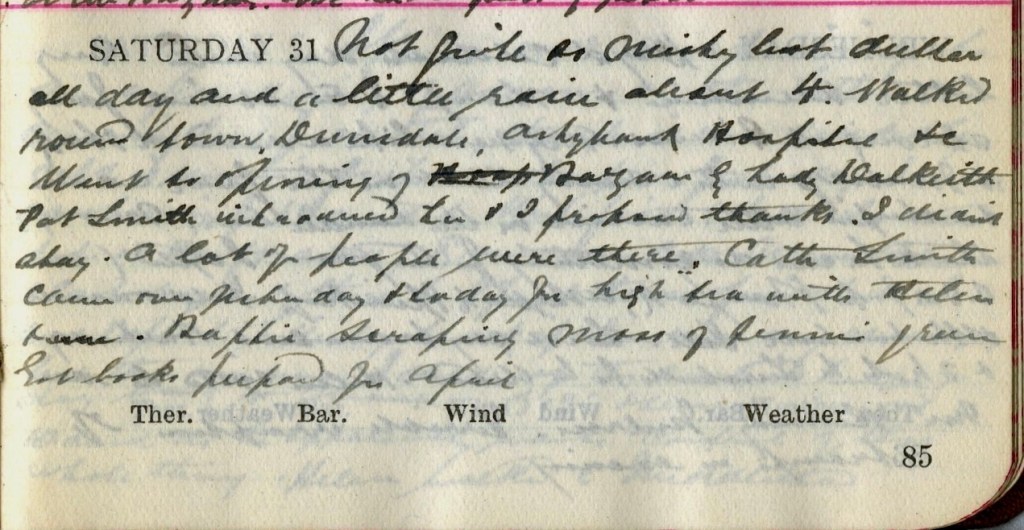 SATURDAY 31 Not quite so misky but duller
all day and a little rain about 4. Walked
round town, Dunsdale, Hospital &c
Went to opening of Bazaar by Lady Dalkeith
Pat Smith introduced her & I proposed thanks. I didnt
stay. A lot of people were there. Cath Smith
came over yesterday & today for high tea with Helen
Baptie scraping moss of tennis green
Got books prepared for April
Ther. Bar. Wind Weather
85